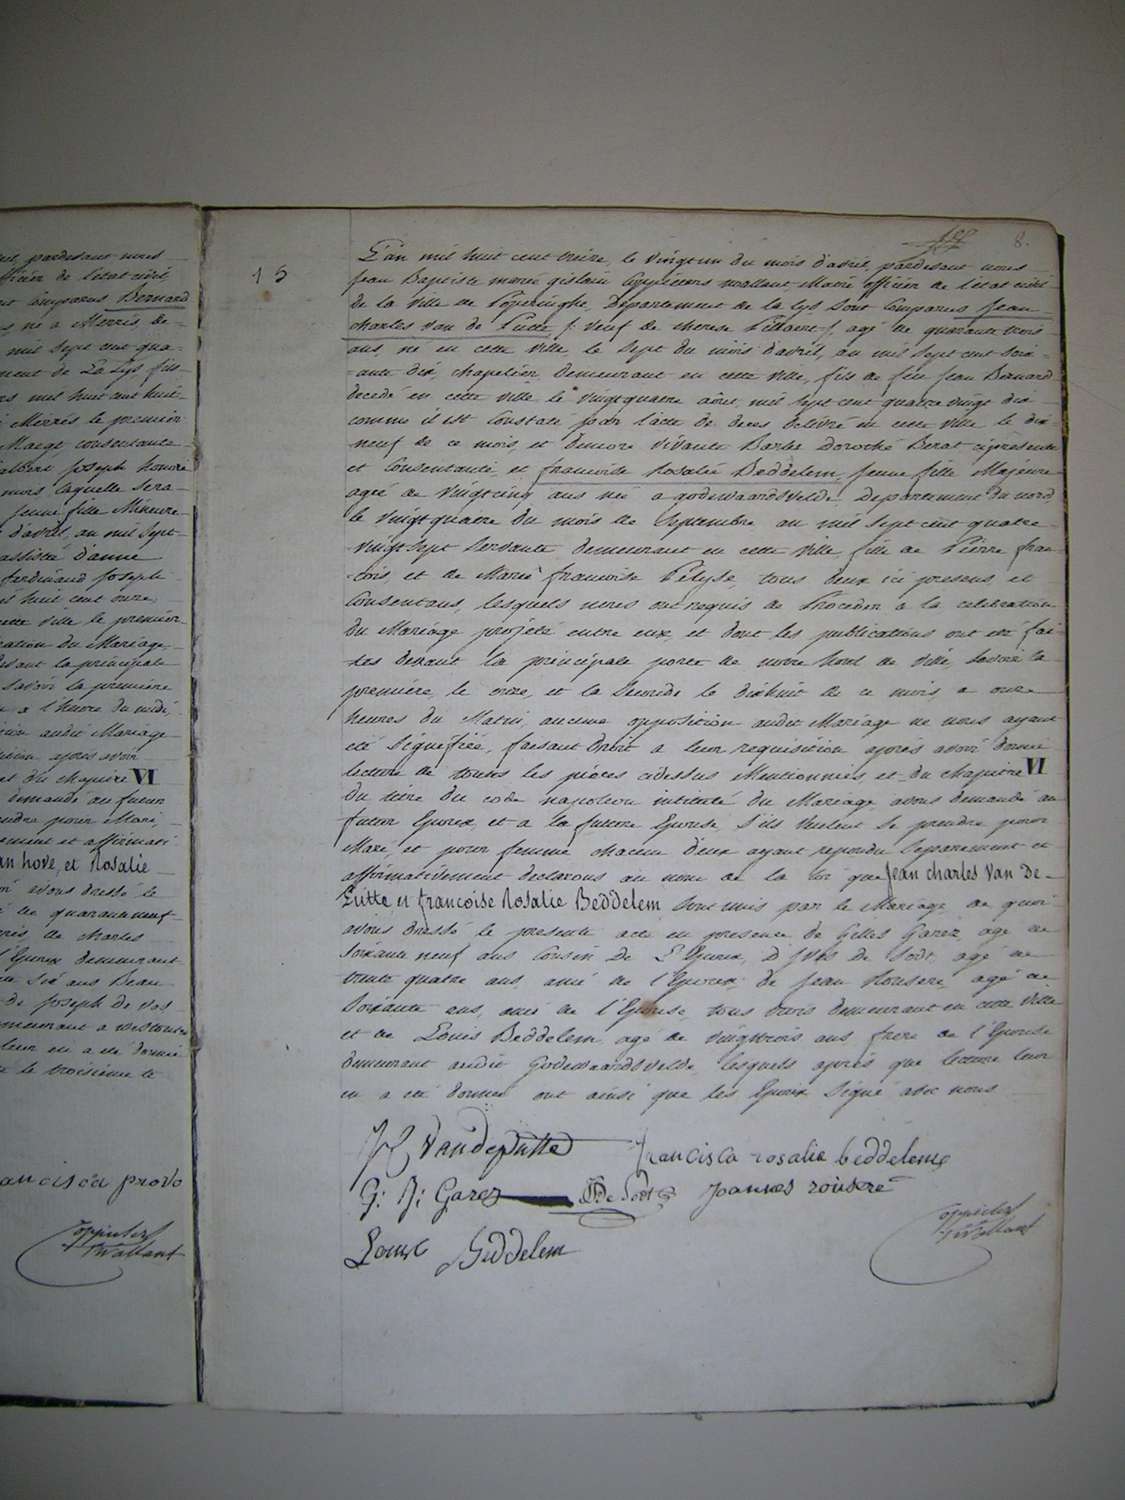 uel pardevant nous
officier de l'état civil
ont comparus Bernard
né a Merris de-
mil sept cent qua-
-ment de La Lys, fils
mil huit cent huit-
Merris le premier
Maegt consentante
albert Joseph honoré
mois laquelle sera
jeune fille Mineure
d'avril, au mil sept-
assistée d'anne
ferdinand Joseph
huit cent onze
cette ville le premier
-ration du Mariage,
devant la principale
savoir la première
a l'heure du midi,
audit Mariage
après avoir
et du chapitre VI
demandé au futur
prendre pour Mari,
-ement et affirmati
an hove, et Rosalie
avons dressé le
de quarante neuf
de Charles
l'Epoux demeurant
six ans Beau
de Joseph de vos
demeurant a westoutre
leur en a été donné
le troisième le
ancisca provo
1 5
8.
L'an mil huit cent treize, le vingt un du mois d'avril, pardevant nous
Jean Baptiste marie gislain Coppieters wallant Maire officier de l'état civil
de la ville de Poperinghe, Département de la Lys sont comparus Jean
charles Van de Putte, /: veuf de therese Pillaert :/, agé de quarante trois
ans, né en cette ville, le sept du mois d'avril, au mil sept cent soix-
-ante dix, chapelier, demeurant en cette ville, fils de feu Jean Bernard
decedé en cette ville le vingt quatre août, mil sept cent quatre vingt dix
comme il est constaté par l'acte de deces délivré en cette ville le dix
neuf de ce mois, et d'encore vivante Barbe Dorothé Berat ci présente
et Consentante et françoise Rosalie Beddelem, jeune fille Majeure
agée de vingt cinq ans née a godewaersvelde, Departement du nord,
le vingt quatre du mois de Septembre au mil sept cent quatre
-vingt sept servante demeurant en cette ville fille de Pierre fran-
-cois, et de Marie françoise Pelyse, tous deux ici presens, et
Consentans, lesquels nous ont requis de Proceder a la celebration
du Mariage projeté entre eux, et dont les publications ont été fai-
-tes devant la principale porte de notre hotel de ville, savoir la
première, le onze, et la seconde le dixhuit de ce mois, a onze
heures du Matin, aucune opposition audit Mariage ne nous ayant
été signifiée, faisant droit a leur requisition après avoir donné
lecture de toutes les pièces cidessus Mentionnées et du chapitre VI
du titre du code napoleon intitulé du Mariage avons demandé au
futur Epoux, et a la future Epouse, s'ils veulent se prendre pour
Mari, et pour femme chacun d'eux ayant repondu Separement et
affirmativement declarons au nom de la loi que Jean charles Van De-
Putte et francoise Rosalie Beddelem sont unis par le Mariage, de quoi
avons dressé le presente acte en presence de Gilles Garez, agé de
soixante neuf ans Cousin de L'Epoux, d'Yves de Sodt, agé de
trente quatre ans, ami de l'Epoux de Jean Rousere, agé de
soixante ans, ami de l'Epouse, tous trois demeurant en cette ville
et de Louis Beddelem, agé de vingt trois ans frere de l'Epouse
demeurant audit Godewaersvelde, lesquels après que lecture leur
en a été donnée ont ainsi que les Epoux signé avec nous
VandePutte francisca rosalie beddeleme
G: J: Garez de Sodt Joannes rousere
Louis Beddelem
Coppieters
Wallant
Coppieters
Wallant